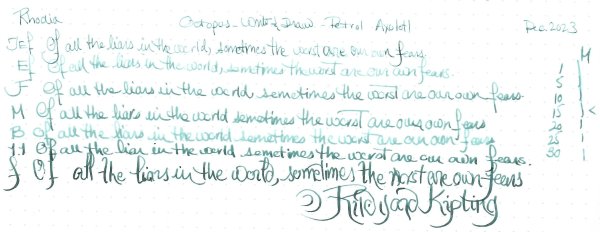 Rhodia Octopus Write & Draw - Petrol Axolotl Dec. 2023
JEf Of all the liars in the world, sometimes the worst are our own fears.
EF Of all the liars in the world, sometimes the worst are our own fears.
F Of all the liars in the world sometimes the worst are our own fears
M Of all the liars in the world sometimes the worst are our own fears
B Of all the liars in the world sometimes the worst are our own fears
1.1 Of all the liar in the world, sometimes the worst are our own fears.
f Of all the liars in the world, sometimes the worst are own fears
Rudyard Kipling
M
1
5
10
15 <
20
25
30